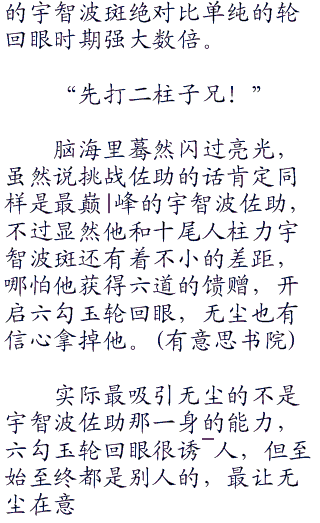 的宇智波斑绝对比单纯的轮
回眼时期强大数倍。
“先打二柱子兄！”
脑海里蓦然闪过亮光，
虽然说挑战佐助的话肯定同
样是最巅|峰的宇智波佐助，
不过显然他和十尾人柱力宇
智波斑还有着不小的差距，
哪怕他获得六道的馈赠，开
启六勾玉轮回眼，无尘也有
信心拿掉他。(有意思书院)
实际最吸引无尘的不是
宇智波佐助那一身的能力，
六勾玉轮回眼很诱¯人，但至
始至终都是别人的，最让无
尘在意